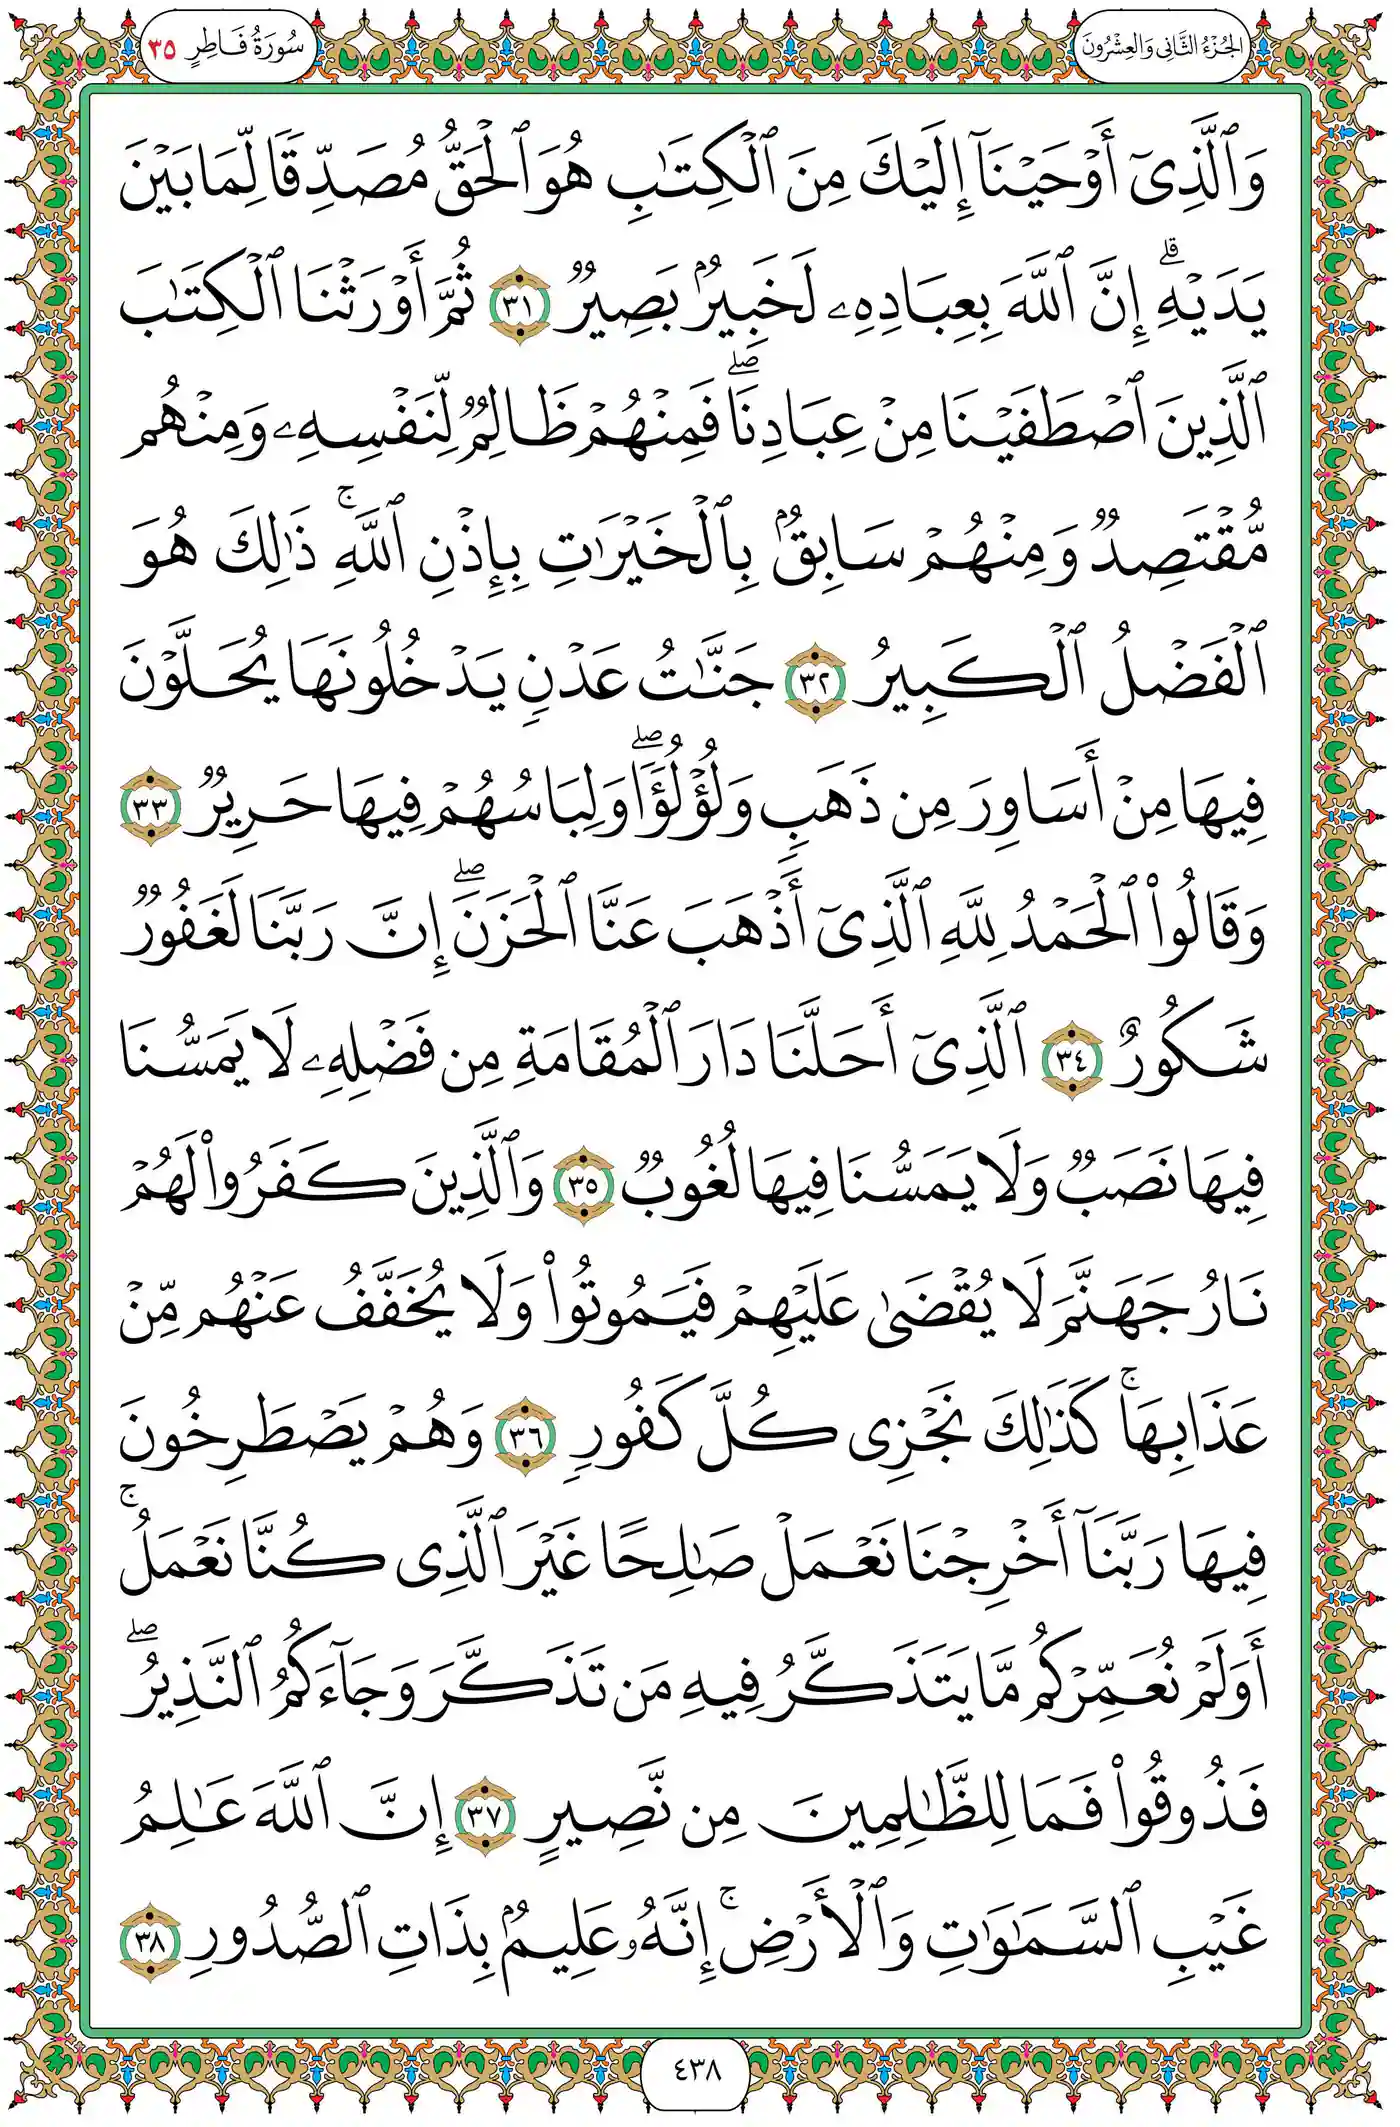 الجُزْءُ الثَّانِي وَالعِشْرُونَ
سُورَةُ فَاطِرٍ ٣٥
وَٱلَّذِىٓ أَوْحَيْنَآ إِلَيْكَ مِنَ ٱلْكِتَٰبِ هُوَ ٱلْحَقُّ مُصَدِّقًا لِّمَا بَيْنَ
يَدَيْهِۗ إِنَّ ٱللَّهَ بِعِبَادِهِۦ لَخَبِيرٌۢ بَصِيرٌ ٣١ ثُمَّ أَوْرَثْنَا ٱلْكِتَٰبَ
ٱلَّذِينَ ٱصْطَفَيْنَا مِنْ عِبَادِنَاۖ فَمِنْهُمْ ظَالِمٌ لِّنَفْسِهِۦ وَمِنْهُم
مُّقْتَصِدٌ وَمِنْهُمْ سَابِقٌۢ بِٱلْخَيْرَٰتِ بِإِذْنِ ٱللَّهِۚ ذَٰلِكَ هُوَ
ٱلْفَضْلُ ٱلْكَبِيرُ ٣٢ جَنَّٰتُ عَدْنٍ يَدْخُلُونَهَا يُحَلَّوْنَ
فِيهَا مِنْ أَسَاوِرَ مِن ذَهَبٍ وَلُؤْلُؤًاۖ وَلِبَاسُهُمْ فِيهَا حَرِيرٌ ٣٣
وَقَالُوا۟ ٱلْحَمْدُ لِلَّهِ ٱلَّذِىٓ أَذْهَبَ عَنَّا ٱلْحَزَنَۖ إِنَّ رَبَّنَا لَغَفُورٌ
شَكُورٌ ٣٤ ٱلَّذِىٓ أَحَلَّنَا دَارَ ٱلْمُقَامَةِ مِن فَضْلِهِۦ لَا يَمَسُّنَا
فِيهَا نَصَبٌ وَلَا يَمَسُّنَا فِيهَا لُغُوبٌ ٣٥ وَٱلَّذِينَ كَفَرُوا۟ لَهُمْ
نَارُ جَهَنَّمَ لَا يُقْضَىٰ عَلَيْهِمْ فَيَمُوتُوا۟ وَلَا يُخَفَّفُ عَنْهُم مِّنْ
عَذَابِهَاۚ كَذَٰلِكَ نَجْزِى كُلَّ كَفُورٍ ٣٦ وَهُمْ يَصْطَرِخُونَ
فِيهَا رَبَّنَآ أَخْرِجْنَا نَعْمَلْ صَٰلِحًا غَيْرَ ٱلَّذِى كُنَّا نَعْمَلُۚ
أَوَلَمْ نُعَمِّرْكُم مَّا يَتَذَكَّرُ فِيهِ مَن تَذَكَّرَ وَجَآءَكُمُ ٱلنَّذِيرُۖ
فَذُوقُوا۟ فَمَا لِلظَّٰلِمِينَ مِن نَّصِيرٍ ٣٧ إِنَّ ٱللَّهَ عَٰلِمُ
غَيْبِ ٱلسَّمَٰوَٰتِ وَٱلْأَرْضِۚ إِنَّهُۥ عَلِيمٌۢ بِذَاتِ ٱلصُّدُورِ ٣٨
٤٣٨